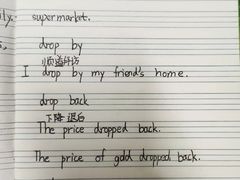 ily. supermarket.
drop by
顺道拜访
I drop by my friend's home.
drop back
下降 退后
The price dropped back.
The price of gold dropped back.